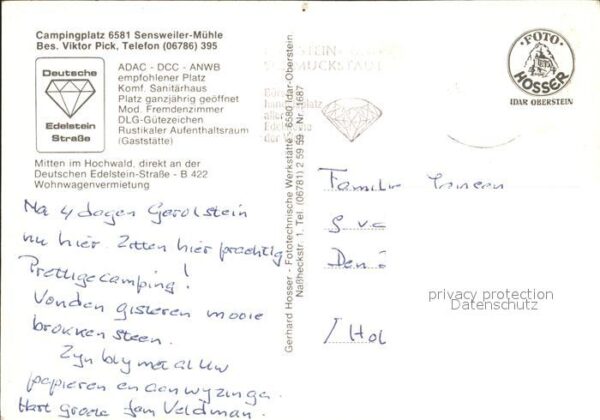 Campingplatz 6581 Sensweiler-Mühle
Bes. Viktor Pick, Telefon (06786) 395
Deutsche
Edelstein
Straße
ADAC - DCC - ANWB
empfohlener Platz
Komf. Sanitärhaus
Platz ganzjährig geöffnet
Mod. Fremdenzimmer
DLG-Gütezeichen
Rustikaler Aufenthaltsraum
(Gaststätte)
Mitten im Hochwald, direkt an der
Deutschen Edelstein-Straße - B 422
Wohnwagenvermietung
Na 4 dagen Gerolstein
nu hier. Zitten hier prachtig
Prettige camping!
Vonden gisteren mooie
brokken steen.
Zyn bly met al Uw
papieren en aanwyzingen.
Hart groete fam Veldman.
Gerhard Hosser - Fototechnische Werkstätte - 6580 Idar-Oberstein
Naßheckstr. 1, Tel. (06781) 2 59 59 - Nr. 1687
FOTO
HOSSER
IDAR OBERSTEIN
Familie
privacy protection
Datenschutz